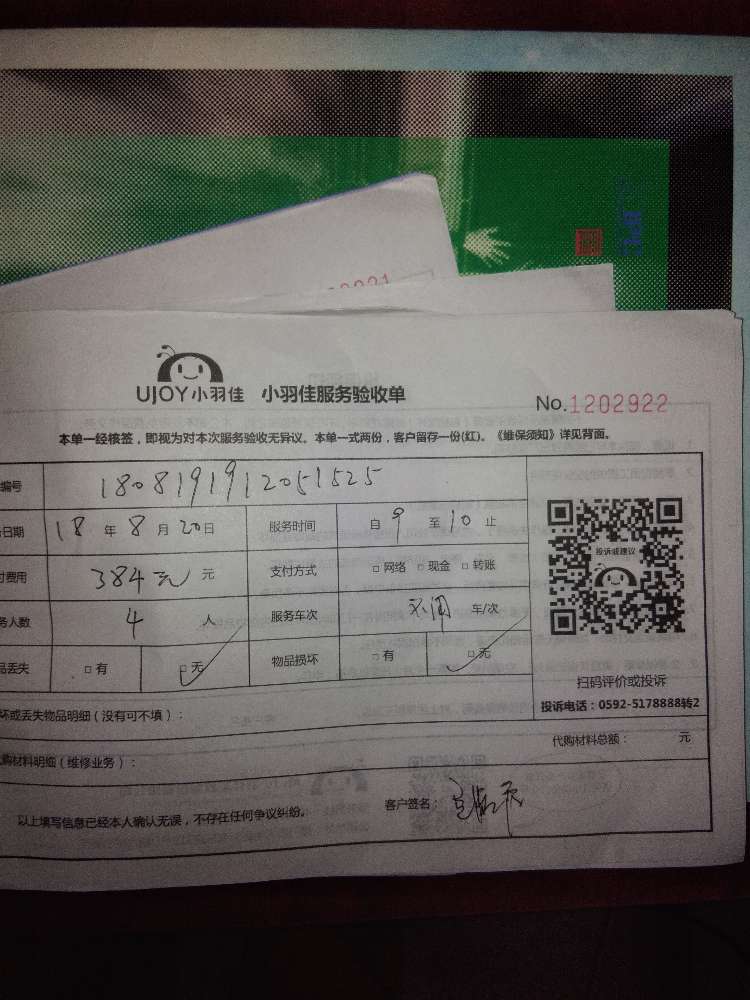 UJOY小羽佳 小羽佳服务验收单 No.1202922
本单一经核签，即视为对本次服务验收无异议。本单一式两份，客户留存一份(红)。《维保须知》详见背面。
编号 1808191912051525
日期 18 年 8 月 20 日 服务时间 自 9 至 10 止
费用 384元 元 支付方式 □网络 □现金 □转账
务人数 4 人 服务车次 不用 车/次
品丢失 □有 □无 物品损坏 □有 □无
投诉或建议
扫码评价或投诉
投诉电话：0592-5178888转2
坏或丢失物品明细（没有可不填）：
代购材料总额： 元
购材料明细（维修业务）：
以上填写信息已经本人确认无误，不存在任何争议纠纷。 客户签名：